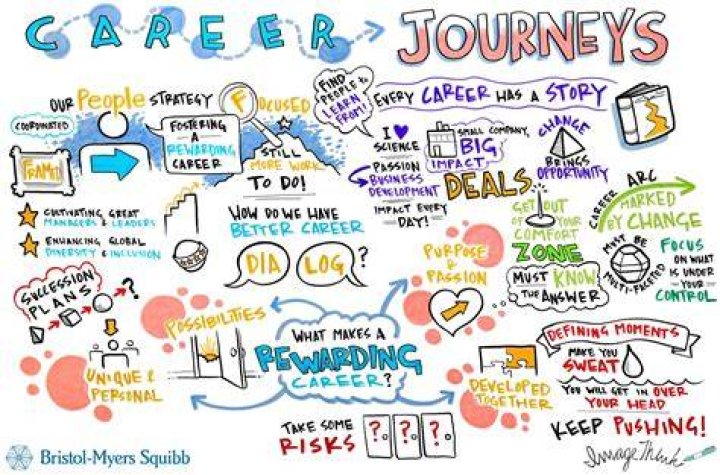 CAREER
JOURNEYS
OUR People STRATEGY
FOCUSED
COORDINATED
FRAMED
FOSTERING
A
REWARDING
CAREER
STILL
MORE WORK
TO DO!
CULTIVATING GREAT
MANAGERS & LEADERS
ENHANCING GLOBAL
DIVERSITY & INCLUSION
HOW DO WE HAVE
BETTER CAREER
DIA LOG?
FIND
PEOPLE TO
LEARN
FROM!
EVERY CAREER HAS A STORY
I
SCIENCE
PASSION
BUSINESS
DEVELOPMENT
IMPACT EVERY
DAY!
SMALL COMPANY,
BIG
IMPACT
DEALS
CHANGE
BRINGS
OPPORTUNITY
GET OUT
OF YOUR
COMFORT
ZONE
MUST KNOW
THE ANSWER
CAREER ARC
MARKED
BY CHANGE
MUST BE
MULTI-FACETED
FOCUS
ON WHAT
IS UNDER
YOUR
CONTROL
SUCCESSION
PLANS
?
UNIQUE &
PERSONAL
POSSIBILITIES
PURPOSE
&
PASSION
WHAT MAKES A
REWARDING
CAREER?
DEVELOPED
TOGETHER
DEFINING MOMENTS
MAKE YOU
SWEAT
YOU WILL GET IN OVER
YOUR HEAD
KEEP PUSHING!
TAKE SOME
RISKS
? ? ?
Bristol-Myers Squibb
ImageThink